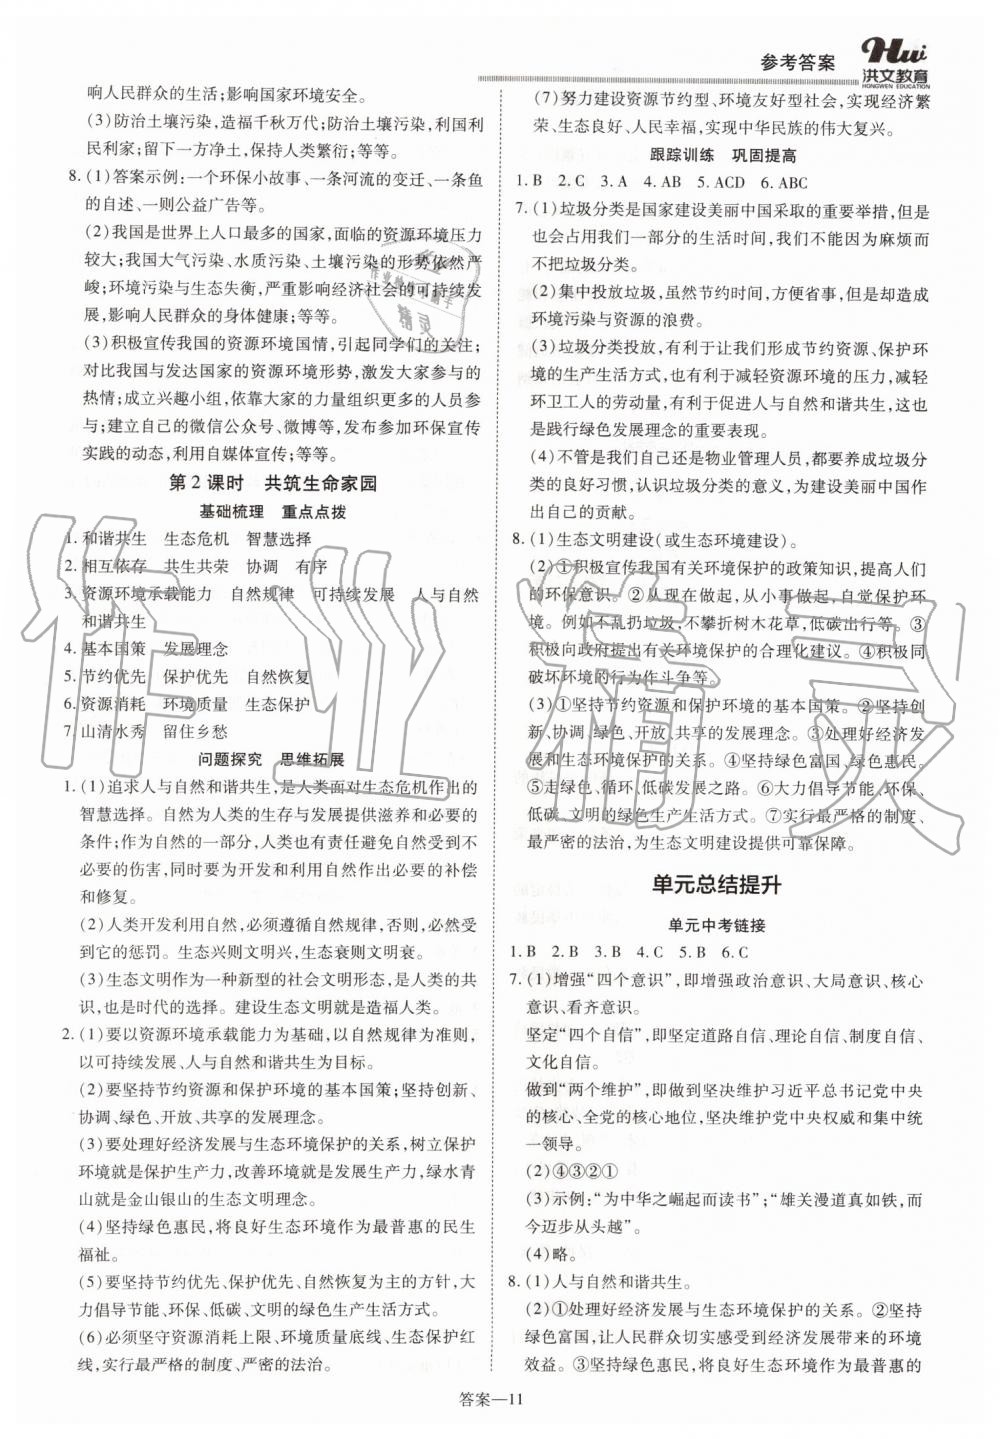 参考答案
Hwi
洪文教育
HONGWEN EDUCATION
响人民群众的生活;影响国家环境安全。
(3)防治土壤污染,造福千秋万代;防治土壤污染,利国利
民利家庭;留下一方净土,保持人类繁衍;等等。
8. (1)答案示例:一个环保小故事、一条河流的变迁、一条鱼
的自述、一则公益广告等。
(2)我国是世界上人口最多的国家,面临的资源环境压力
较大;我国大气污染、水质污染、土壤污染的形势依然严
峻;环境污染与生态失衡,严重影响经济社会的可持续发
展,影响人民群众的身体健康;等等。
(3)积极宣传我国的资源环境国情,引起同学们的关注;
对比我国与发达国家的资源环境形势,激发大家参与的
热情;成立兴趣小组,依靠大家的力量组织更多的人员参
与;建立自己的微信公众号、微博等,发布参加环保宣传
实践的动态,利用自媒体宣传;等等。
第2课时 共筑生命家园
基础梳理 重点点拨
1. 和谐共生 生态危机 智慧选择
2. 相互依存 共生共荣 协调 有序
3. 资源环境承载能力 自然规律 可持续发展 人与自然
和谐共生
4. 基本国策 发展理念
5. 节约优先 保护优先 自然恢复
6. 资源消耗 环境质量 生态保护
7. 山清水秀 留住乡愁
问题探究 思维拓展
1. (1)追求人与自然和谐共生,是人类面对生态危机作出的
智慧选择。自然为人类的生存与发展提供滋养和必要的
条件;作为自然的一部分,人类也有责任避免自然受到不
必要的伤害;同时要为开发和利用自然作出必要的补偿
和修复。
(2)人类开发利用自然,必须遵循自然规律,否则,必会受
到它的惩罚。生态兴则文明兴,生态衰则文明衰。
(3)生态文明作为一种新型的社会文明形态,是人类的共
识,也是时代的选择。建设生态文明就是造福人类。
2. (1)要以资源环境承载能力为基础,以自然规律为准则,
以可持续发展、人与自然和谐共生为目标。
(2)要坚持节约资源和保护环境的基本国策;坚持创新、
协调、绿色、开放、共享的发展理念。
(3)要处理好经济发展与生态环境保护的关系,树立保护
环境就是保护生产力,改善环境就是发展生产力,绿水青
山就是金山银山的生态文明理念。
(4)坚持绿色惠民,将良好生态环境作为最普惠的民生
福祉。
(5)要坚持节约优先、保护优先、自然恢复为主的方针,大
力倡导节能、环保、低碳、文明的绿色生产生活方式。
(6)必须坚守资源消耗上限、环境质量底线、生态保护红
线,实行最严格的制度、严密的法治。
(7)努力建设资源节约型、环境友好型社会,实现经济繁
荣、生态良好、人民幸福,实现中华民族的伟大复兴。
跟踪训练 巩固提高
1. B 2. C 3. A 4. AB 5. ACD 6. ABC
7. (1)垃圾分类是国家建设美丽中国采取的重要举措,但是
也会占用我们一部分的生活时间,我们不能因为麻烦而
不把垃圾分类。
(2)集中投放垃圾,虽然节约时间,方便省事,但是却造成
环境污染与资源的浪费。
(3)垃圾分类投放,有利于让我们形成节约资源、保护环
境的生产生活方式,也有利于减轻资源环境的压力,减轻
环卫工人的劳动量,有利于促进人与自然和谐共生,这也
是践行绿色发展理念的重要表现。
(4)不管是我们自己还是物业管理人员,都要养成垃圾分
类的良好习惯,认识垃圾分类的意义,为建设美丽中国作
出自己的贡献。
8. (1)生态文明建设(或生态环境建设)。
(2)①积极宣传我国有关环境保护的政策知识,提高人们
的环保意识。②从现在做起,从小事做起,自觉保护环
境。例如不乱扔垃圾,不攀折树木花草,低碳出行等。③
积极向政府提出有关环境保护的合理化建议。④积极同
破坏环境的行为作斗争等。
(3)①坚持节约资源和保护环境的基本国策。②坚持创
新、协调、绿色、开放、共享的发展理念。③处理好经济发
展和生态环境保护的关系。④坚持绿色富国、绿色惠民。
⑤走绿色、循环、低碳发展之路。⑥大力倡导节能、环保、
低碳、文明的绿色生产生活方式。⑦实行最严格的制度、
最严密的法治,为生态文明建设提供可靠保障。
单元总结提升
单元中考链接
1. B 2. B 3. B 4. C 5. B 6. C
7. (1)增强“四个意识”,即增强政治意识、大局意识、核心
意识、看齐意识。
坚定“四个自信”,即坚定道路自信、理论自信、制度自信、
文化自信。
做到“两个维护”,即做到坚决维护习近平总书记党中央
的核心、全党的核心地位,坚决维护党中央权威和集中统
一领导。
(2)④③②①
(3)示例:“为中华之崛起而读书”;“雄关漫道真如铁,而
今迈步从头越”。
(4)略。
8. (1)人与自然和谐共生。
(2)①处理好经济发展与生态环境保护的关系。②坚持
绿色富国,让人民群众切实感受到经济发展带来的环境
效益。③坚持绿色惠民,将良好生态环境作为最普惠的
答案—11
作业精灵